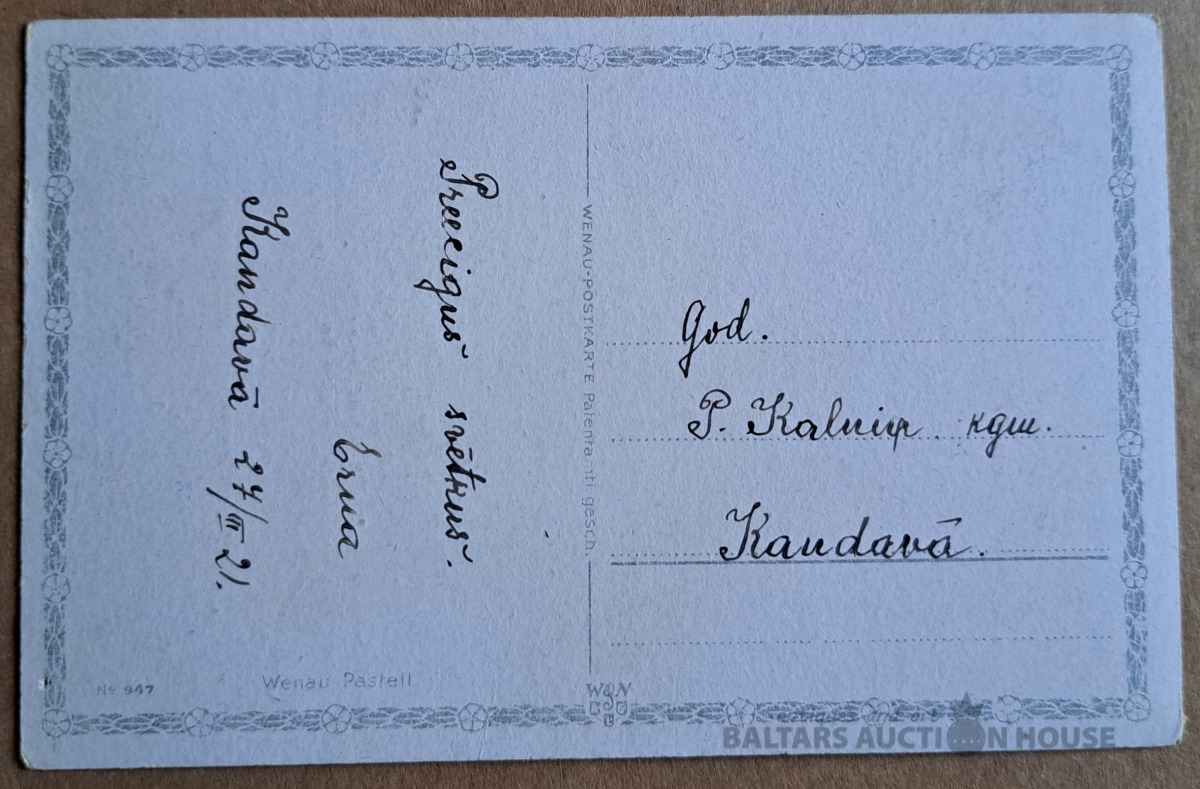 Preecigus̆ svētkus̆.
Erna
Kandavā 27/III 21.
WENAU-POSTKARTE Patentamtl gesch.
God.
P. Kalniņ kgm.
Kandavā.
No 947
Wenau-Pastell.
W&N
antiques and art
BALTARS AUCTION HOUSE